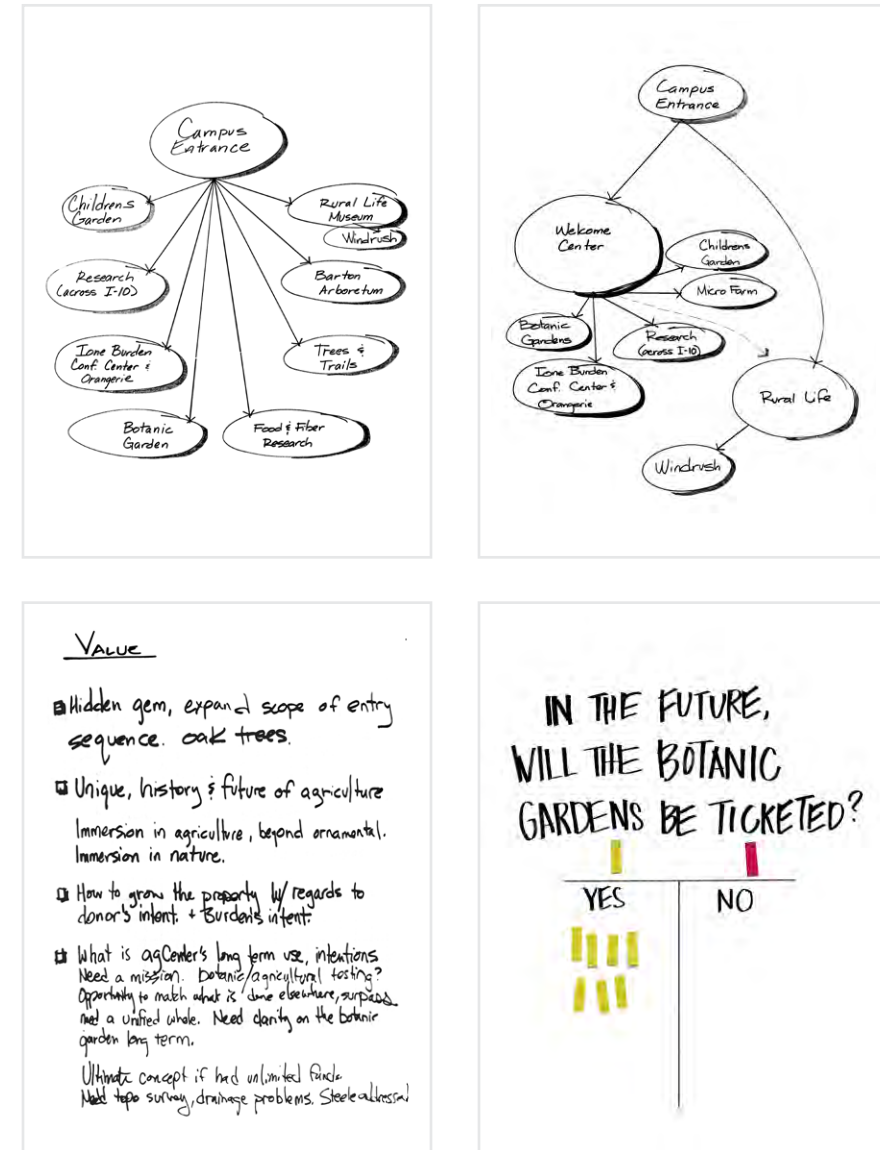 Campus
Entrance
Childrens
Garden
Rural Life
Museum
Windrush
Research
(across I-10)
Barton
Arboretum
Ione Burden
Conf. Center &
Orangerie
Trees &
Trails
Botanic
Garden
Food & Fiber
Research
Campus
Entrance
Welcome
Center
Childrens
Garden
Micro Farm
Botanic
Gardens
Research
(across I-10)
Ione Burden
Conf. Center &
Orangerie
Rural Life
Windrush
VALUE
Hidden gem, expand scope of entry
sequence. oak trees.
Unique, history & future of agriculture
Immersion in agriculture, beyond ornamental.
Immersion in nature.
How to grow the property w/ regards to
donor's intent. + Burden's intent.
What is agCenter's long term use, intentions
Need a mission. botanic/agricultural testing?
Opportunity to match what is done elsewhere, surpass
need a unified whole. Need clarity on the botanic
garden long term.
Ultimate concept if had unlimited funds
Need topo survey, drainage problems. Steele addressed
IN THE FUTURE,
WILL THE BOTANIC
GARDENS BE TICKETED?
YES
NO